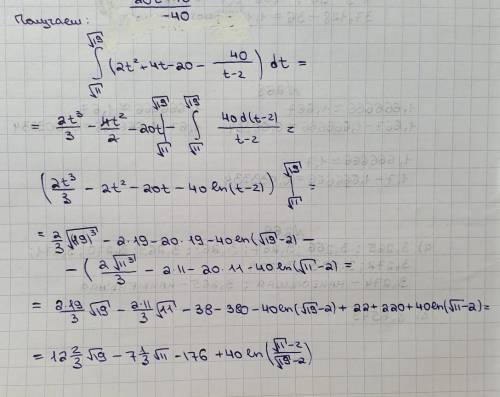 -40
Получаем:
∫_{√11}^{√19} (2t² + 4t - 20 - 40/(t-2)) dt =
= 2t³/3 - 4t²/2 - 20t |_{√11}^{√19} - ∫_{√11}^{√19} 40d(t-2)/(t-2) =
(2t³/3 - 2t² - 20t - 40 ln(t-2)) |_{√11}^{√19} =
= 2/3 √(19)³ - 2·19 - 20·19 - 40ln(√19-2) -
- (2√11³/3 - 2·11 - 20·11 - 40ln(√11-2) =
= 2·19/3 √19 - 2·11/3 √11 - 38 - 380 - 40ln(√19-2) + 22 + 220 + 40ln(√11-2) =
= 12 2/3 √19 - 7 1/3 √11 - 176 + 40 ln((√11-2)/(√19-2))